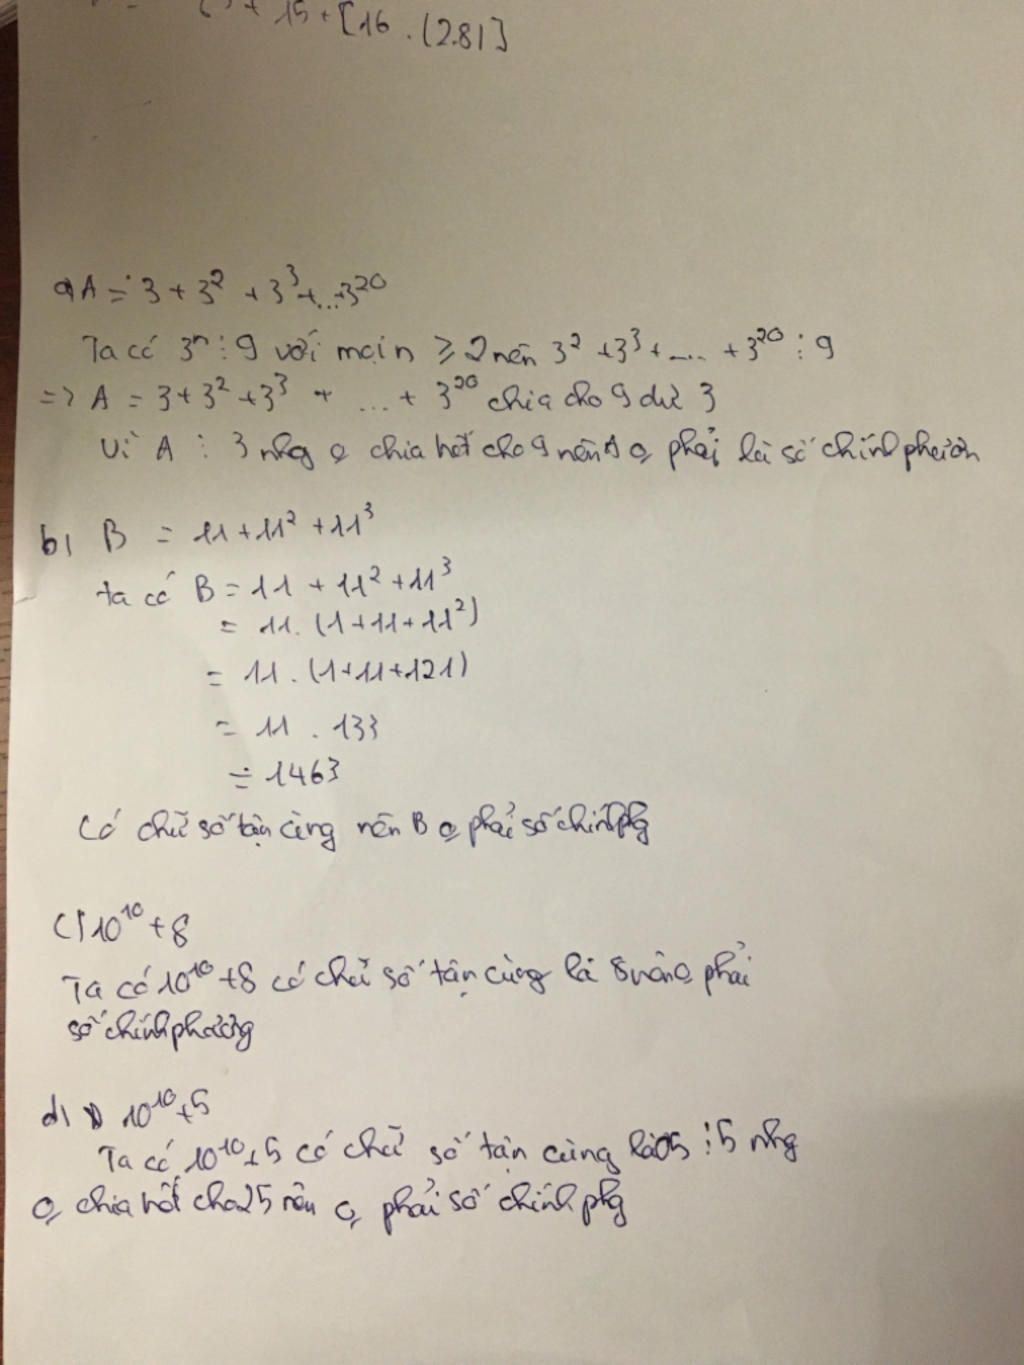 + 15 + [16 . (2.81]
a, A = 3 + 3² + 3³ + ... + 3²⁰
Ta có 3ⁿ ⋮ 9 với mọi n ≥ 2 nên 3² + 3³ + .... + 3²⁰ ⋮ 9
=> A = 3 + 3² + 3³ + ... + 3²⁰ chia cho 9 dư 3
Vì A ⋮ 3 nhg o chia hết cho 9 nên A o phải là số chính phươn
b, B = 11 + 11² + 11³
ta có B = 11 + 11² + 11³
= 11. (1 + 11 + 11²)
= 11 . (1 + 11 + 121)
= 11 . 133
= 1463
Có chữ số tận cùng nên B o phải số chính phg
c, 10¹⁰ + 8
Ta có 10¹⁰ + 8 có chữ số tận cùng là 8 nên o phải
số chính phương
d, 10¹⁰ + 5
Ta có 10¹⁰ + 5 có chữ số tận cùng là 05 ⋮ 5 nhg
o chia hết cho 25 nên o phải số chính phg